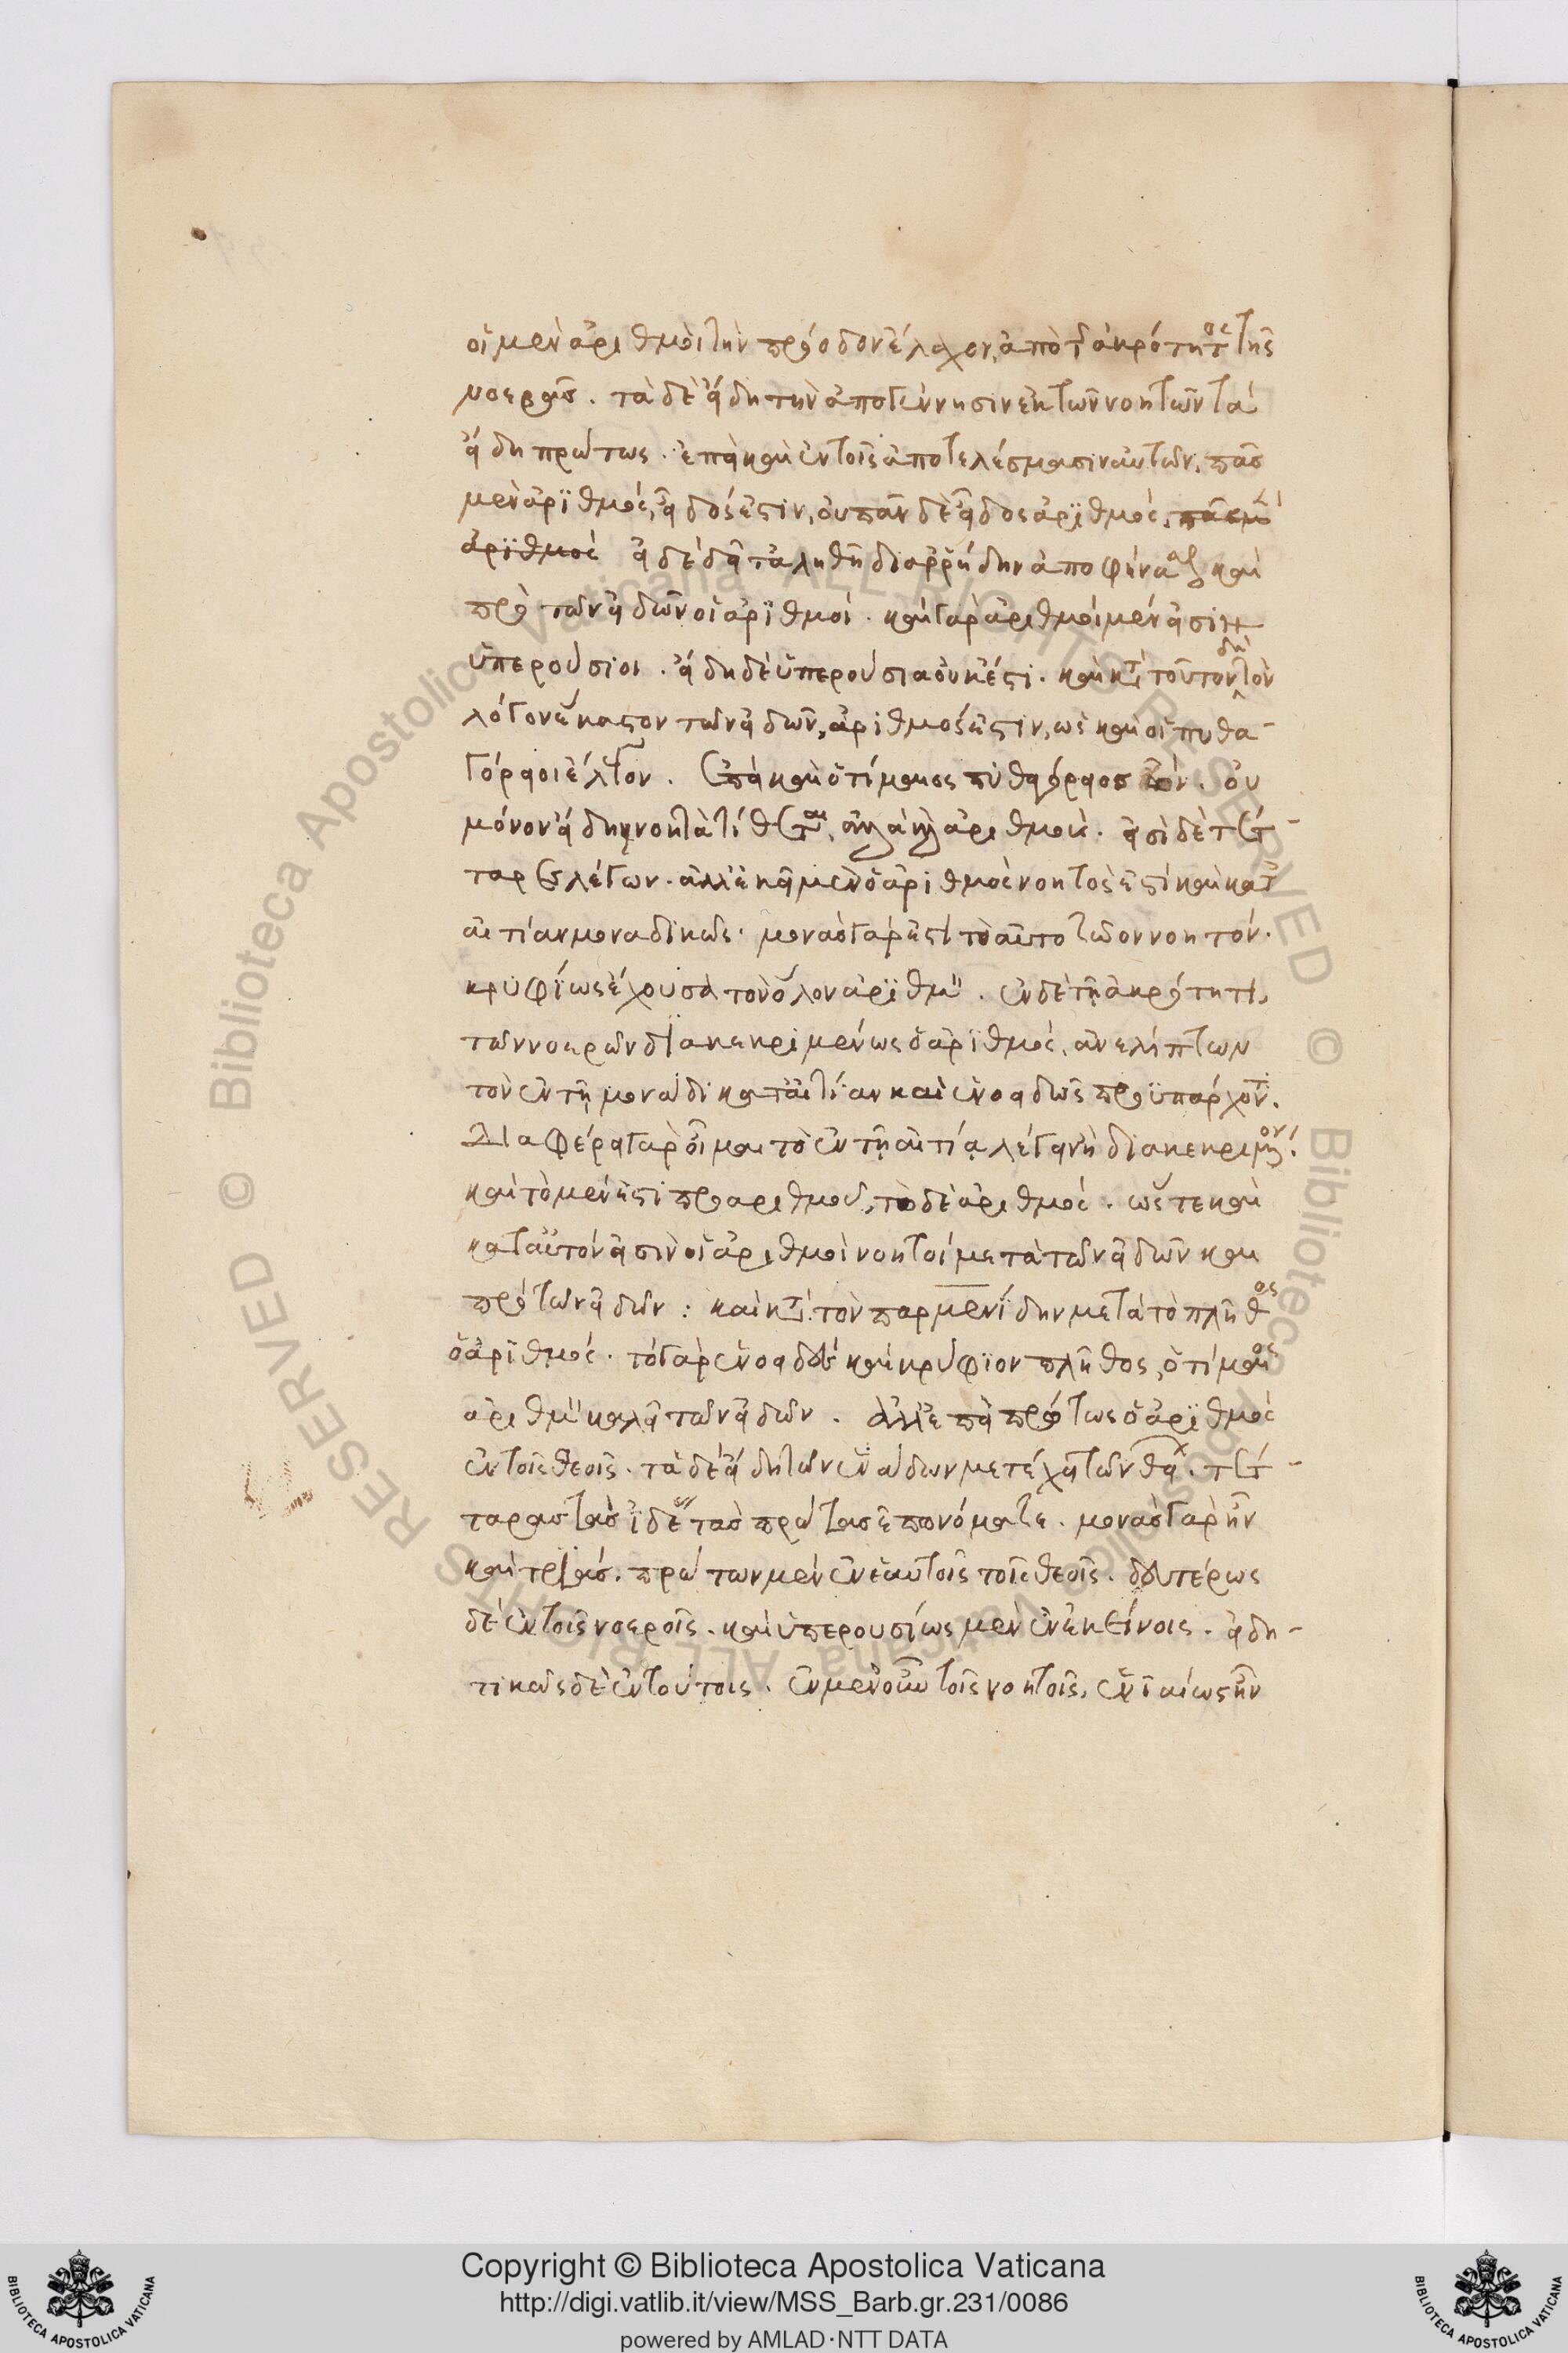 οἱ μὲν ἀριθμοὶ τὴν πρόοδον ἔλαχον, ἀπὸ τ ἀκρότητος τῆς
νοερᾶς. τὰ δὲ εἴδη τὴν ἀπογέννησιν ἐκ τῶν νοητῶν τὰ
εἴδη πρώτως. ἐπεὶ καὶ ἐν τοῖς ἀποτελέσμασιν αὐτῶν, πᾶς
μὲν ἀρϊθμὸς, εἶδός ἐστιν, οὐ πᾶν δὲ εἶδος ἀρϊθμός.
ἀρϊθμὸς εἰ δὲ δεῖ τἀληθῆ διαρρήδην ἀποφήνασθαι καὶ
πρὸ τῶν εἰδῶν οἱ ἀρϊθμοί. καὶ γὰρ ἀριθμοὶ μέν εἰσιν
ὑπερούσιοι. εἴδη δὲ ὑπερούσια οὐκ ἔστι. καὶ κατὰ τοῦτον δὴ τὸν
λόγον ἕκαστον τῶν εἰδῶν, ἀριθμός ἐστιν, ὡς καὶ οἱ πυθα-
γόρειοι ἔλεγον. ἐπεὶ καὶ ὁ τίμαιος πυθαγόρειος ὢν. οὐ
μόνον εἴδη νοητὰ τίθεται, ἀλλὰ καὶ ἀριθμούς. εἰσὶ δὲ τέτ-
ταρες λέγων. ἀλλ' ἐκεῖ μὲν ὁ ἀριθμὸς νοητός ἐστί καὶ κατ
αἰτίαν μοναδικῶς. μονὰς γάρ ἐστι τὸ αὐτοζῶον νοητόν.
κρυφίως ἔχουσα τὸν ὅλον ἀρϊθμὸν. ἐν δὲ τῇ ἀκρότητι,
τῶν νοερῶν διακεκριμένως ὁ ἀρϊθμός, ἀνελίττων
τὸν ἐν τῇ μονάδι κατ' αἰτίαν καὶ ἑνοειδῶς προϋπάρχοντ.
Διαφέρει γὰρ οἶμαι τὸ ἐν τῇ αἰτίᾳ λέγειν ἢ διακεκριμένον.
καὶ τὸ μέν ἐστι πρὸ ἀριθμοῦ, τὸ δὲ ἀριθμός. ὥστε καὶ
κατ' αὐτόν εἰσιν οἱ ἀριθμοὶ νοητοί μετὰ τῶν εἰδῶν καὶ
πρὸ τῶν εἰδῶν: καὶ κατὰ τὸν παρμενίδην μετὰ τὸ πλῆθος
ὁ ἀρϊθμός. τὸ γὰρ ἑνοειδὲς καὶ κρύφϊον πλῆθος, ὁ τίμαιος
ἀριθμὸν καλεῖ τῶν εἰδῶν. ἀλλ' ἐπεὶ πρώτως ὁ ἀρϊθμὸς
ἐν τοῖς θεοῖς. τὰ δὲ εἴδη τῶν ἑνάδων μετέχει τῶν θείων. τέτ-
ταρας τὰς ἰδέας τὰς πρώτας ἐπονόμασε. μονὰς γὰρ ἦν
καὶ τριάς. πρώτων μὲν ἐν ἑαυτοῖς τοῖς θεοῖς. δευτέρως
δὲ ἐν τοῖς νοεροῖς. καὶ ὑπερουσίως μὲν ἐν ἐκείνοις. εἰδη-
τικῶς δὲ ἐν τούτοις. ἐν μὲν οὖν τοῖς νοητοῖς, ἑνιαίως ἦν
Copyright © Biblioteca Apostolica Vaticana
http://digi.vatlib.it/view/MSS_Barb.gr.231/0086
powered by AMLAD·NTT DATA